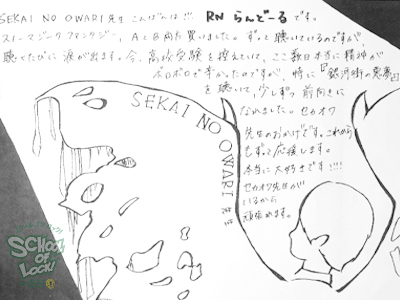 SEKAI NO OWARI先生 こんばんは!!! RN らんどーる です。
スノーマジックファンタジー、AとB両方買いました。ずっと聴いているのですが
聴くたびに涙が出ます。今、高校受験を控えていて、ここ数日本当に精神が
ボロボロで辛かったんですが、時に『銀河街の悪夢』
を聴いて、少しずつ前向きに
なれました。セカオワ
先生のおかげです。これから
もずっと応援します。
本当に大好きです!!!!
セカオワ先生が
いるから
頑張れます。
SEKAI NO OWARI
SEKAI NO OWARI
SCHOOL
OF
LOCK!